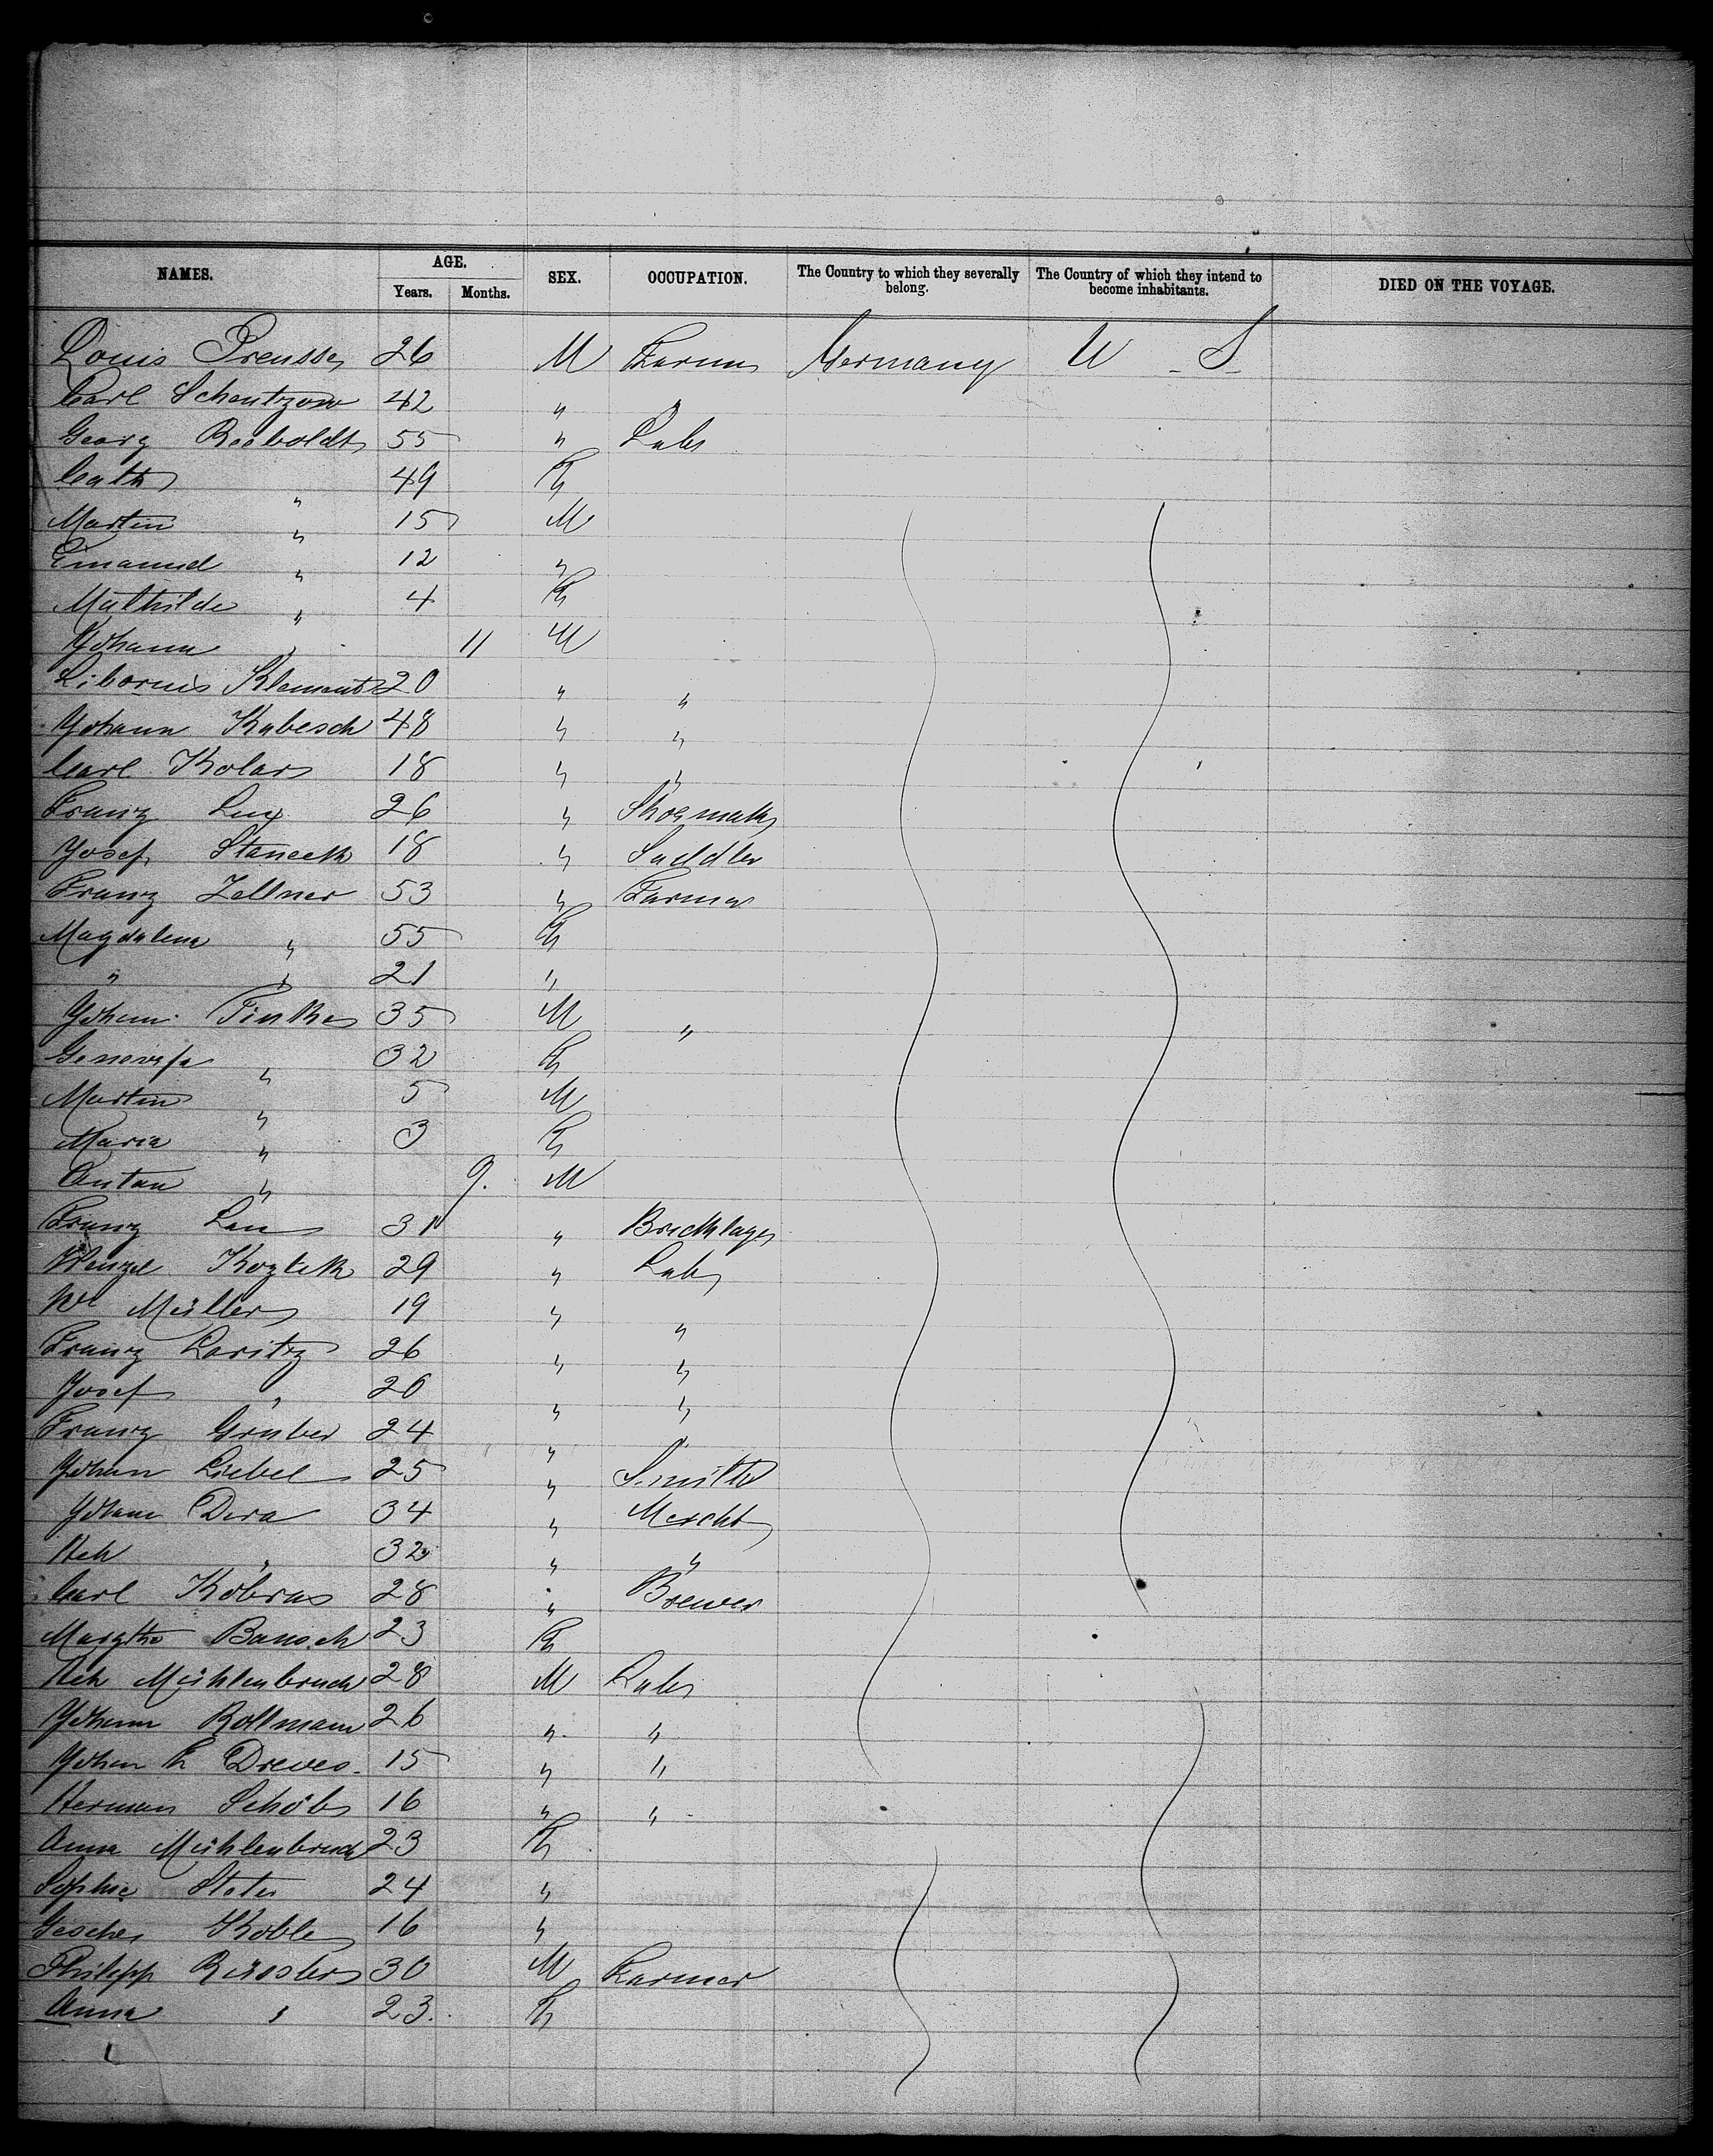 NAMES. AGE. SEX. OCCUPATION. The Country to which they severally belong. The Country of which they intend to become inhabitants. DIED ON THE VOYAGE.
Years. Months.
Louis Preusse 26 M Farmer Germany U S
Carl Schentzow 42 " "
Georg Reeboldt 55 " Labr
Cath " 49 F
Martin " 15 M
Emanuel " 12 "
Mathilde " 4 F
Johann " 11 M
Liborius Klement 20 " "
Johann Kubesch 48 " "
Carl Kolar 18 " "
Franz Lux 26 " Shoemak
Josef Staneck 18 " Saddler
Franz Zellner 53 " Farmer
Magdalena " 55 F
" " 21 "
Johann Finke 35 M "
Genovefa " 32 F
Martin " 5 M
Maria " 3 F
Anton " 9. M
Franz Lan 31 " Bricklayer
Wenzel Kozlek 29 " Labr
We Müller 19 " "
Franz Loritz 26 " "
Josef " 20 " "
Franz Gruber 24 " "
Johan Liebel 25 " Smith
Johann Dera 34 " Mercht
Hch " 32 " "
Carl Kobras 28 " Brewer
Margthe Banisch 23 F
Hch Mühlenbruch 28 M Labr
Johann Rollmann 26 " "
Johan h Dreves. 15 " "
Herman Schöb 16 " "
Anna Mühlenbruch 23 F
Sophie Stoter 24 "
Gesche Koble 16 "
Philipp Rüssler 30 M Farmer
Anna " 23. F